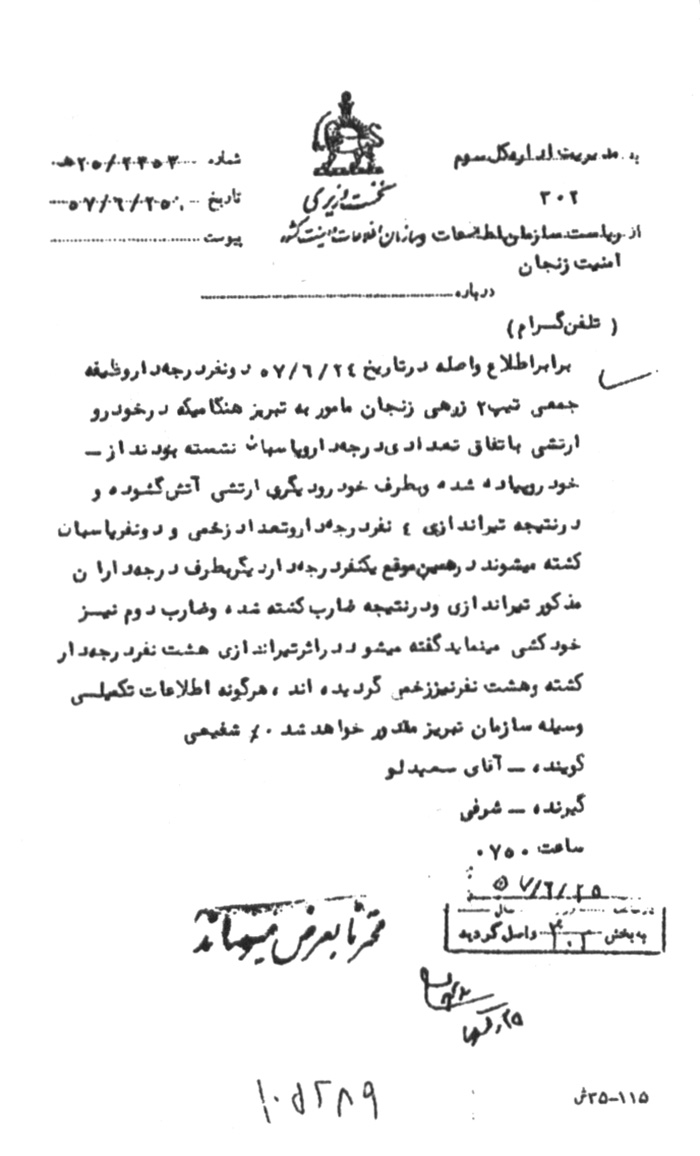 به مدیریت اداره کل سوم
۳۰۲
از ریاست سازمان اطلاعات و امنیت زنجان
نخست وزیری
سازمان اطلاعات و امنیت کشور
شماره ۲۵/۲۳۵۳ هـ
تاریخ ۵۷/۶/۲۵
پیوست
درباره
(تلفن گرام)
برابر اطلاع واصله در تاریخ ۵۷/۶/۲٤ دو نفر درجه دار وظیفه
جمعی تیپ ۲ زرهی زنجان مامور به تبریز هنگامیکه در خودرو
ارتشی باتفاق تعدادی درجه دار و پاسبان نشسته بودند از ـ
خودرو پیاده شده و بطرف خودرو دیگری ارتشی آتش گشوده و
در نتیجه تیراندازی ٤ نفر درجه دار و تعداد زخمی و دو نفر پاسبان
کشته میشوند در همین موقع یکنفر درجه دار دیگر بطرف درجه داران
مذکور تیراندازی و در نتیجه ضارب کشته شده و ضارب دوم نیز
خودکشی مینماید گفته میشود در اثر تیراندازی هشت نفر درجه دار
کشته و هشت نفر نیز زخمی گردیده اند ، هرگونه اطلاعات تکمیلی
وسیله سازمان تبریز مقدور خواهد شد ۰٪ شفیعی
گوینده ـ آقای سعیدلو
گیرنده ـ شوقی
ساعت ۰۷۵۰
۵۷/۶/۲۵
سال
به بخش واصل گردید
محترماً بعرض میرساند
۱۰۵۲۸۹
۱۱۵-۳۵ش